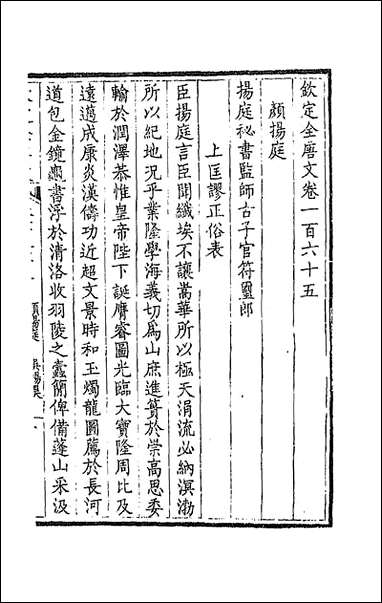 欽定全唐文卷一百六十五
顏揚庭
揚庭祕書監師古子官符璽郎
上匡謬正俗表
臣揚庭言臣聞纖埃不讓嵩華所以極天涓流必納溟渤
所以紀地況乎業隆學海義切爲山庶進簣於崇高思委
輸於潤澤恭惟皇帝陛下誕膺睿圖光臨大寶隆周比及
遠邁成康炎漢儔功近超文景時和玉燭龍圖薦於長河
道包金鏡龜書浮於清洛收羽陵之蠹簡俾備蓬山采汲